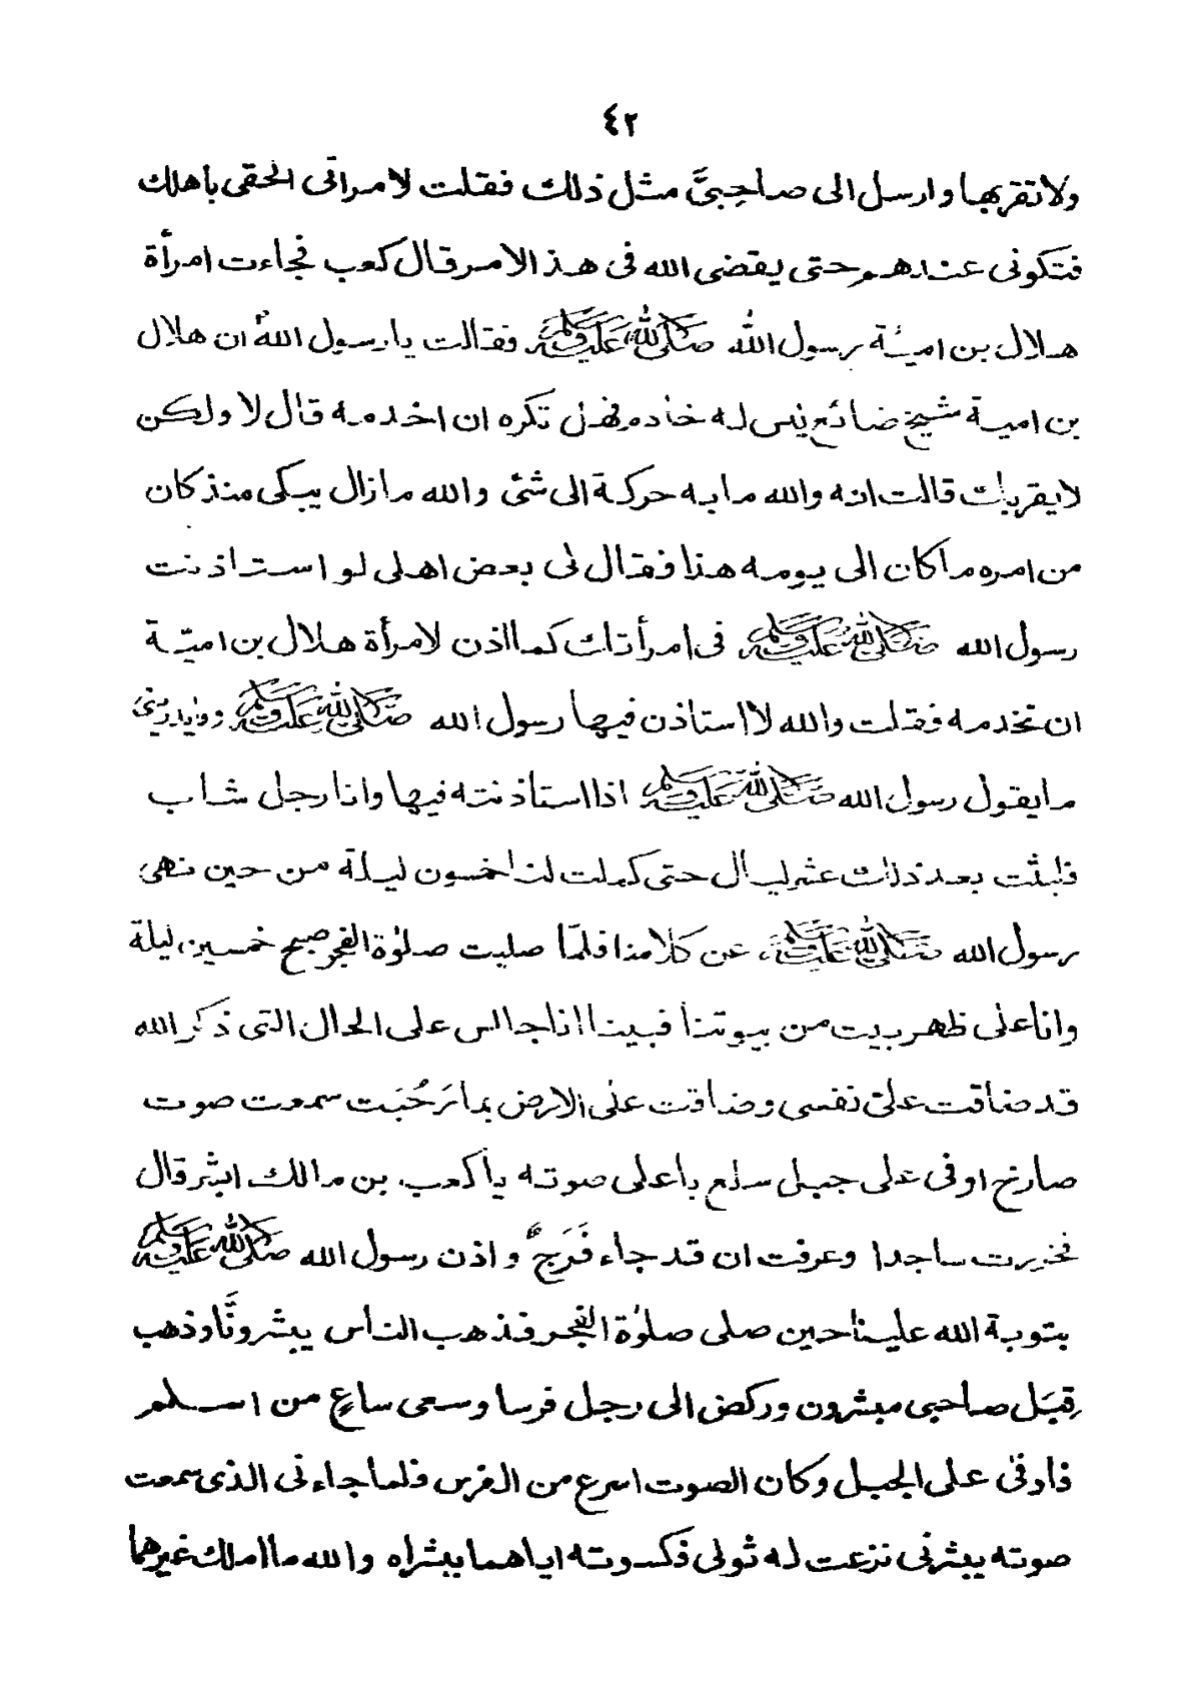 ٤٢
ولا تقربها وارسل الى صاحِبىَّ مثل ذلك فقلت لامراتى الحقى باهلك
فتكونى عندهم حتى يقضى الله فى هذ الامر قال كعب فجاءت امرأة
هلال بن امية رسول الله ﷺ فقالت يا رسول الله ان هلال
بن امية شيخ ضائع ليس له خادم فهل تكره ان اخدمه قال لا ولكن
لا يقربك قالت انه والله ما به حركة الى شئ والله ما زال يبكى منذ كان
من امره ما كان الى يومه هذا فقال لى بعض اهلى لو استاذنت
رسول الله ﷺ فى امرأتك كما اذن لامرأة هلال بن اميّة
ان تخدمه فقلت والله لا استاذن فيها رسول الله ﷺ وما يدرينى
ما يقول رسول الله ﷺ اذا استاذنته فيها وانا رجل شاب
فلبثت بعد ذلك عشر ليال حتى كملت لنا خمسون ليلة من حين نهى
رسول الله ﷺ عن كلامنا فلمّا صليت صلوٰة الفجر صبح خمسين ليلة
وانا على ظهر بيت من بيوتنا فبينا انا جالس على الحال التى ذكر الله
قد ضاقت علىّ نفسى وضاقت علىّ الارض بما رَحُبَت سمعت صوت
صارخ اوفى على جبل سلع باعلى صوته يا كعب بن مالك ابشر قال
فخررت ساجدا وعرفت ان قد جاء فَرَجٌ واذن رسول الله ﷺ
بتوبة الله علينا حين صلى صلوٰة الفجر فذهب الناس يبشروننا وذهب
قِبَل صاحبى مبشرون وركض الى رجل فرسا وسعى ساعٍ من اسلم
فاوفى على الجبل وكان الصوت اسرع من الفرس فلما جاءنى الذى سمعت
صوته يبشرنى نزعت له ثوبى فكسوته اياهما ببشراه والله ما املك غيرهما